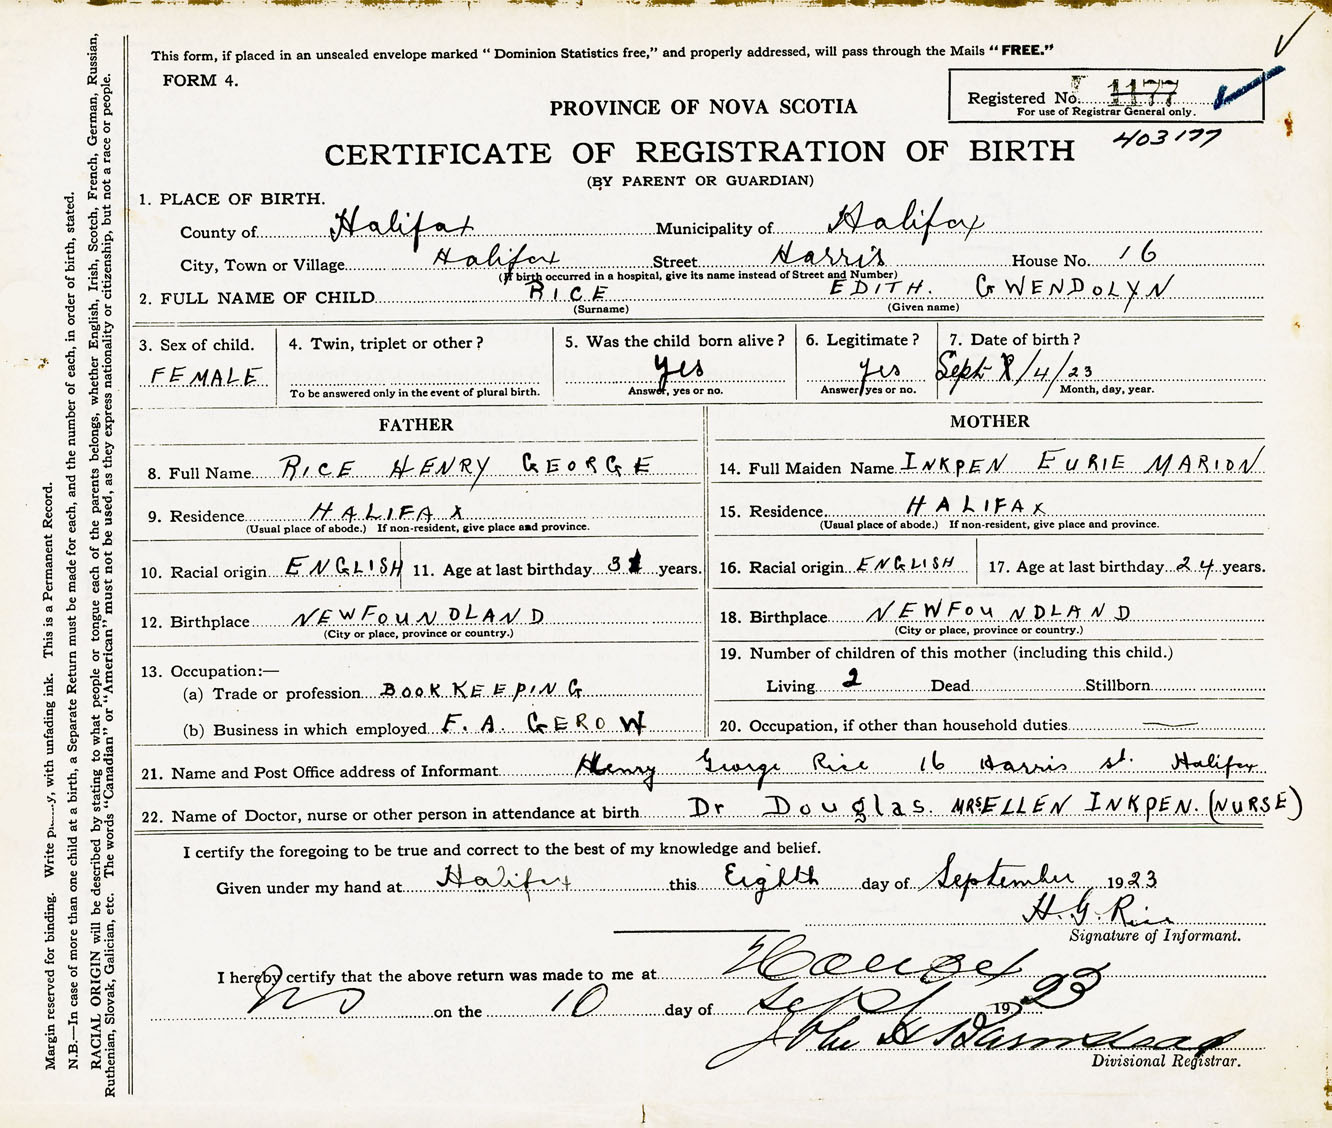 This form, if placed in an unsealed envelope marked "Dominion Statistics free," and properly addressed, will pass through the Mails "FREE."
FORM 4.
Registered No. 1177
For use of Registrar General only.
403177
PROVINCE OF NOVA SCOTIA
CERTIFICATE OF REGISTRATION OF BIRTH
(BY PARENT OR GUARDIAN)
1. PLACE OF BIRTH.
County of Halifax Municipality of Halifax
City, Town or Village Halifax Street Harris House No. 16
(If birth occurred in a hospital, give its name instead of Street and Number)
2. FULL NAME OF CHILD RICE EDITH. GWENDOLYN
(Surname) (Given name)
3. Sex of child. 4. Twin, triplet or other? 5. Was the child born alive? 6. Legitimate? 7. Date of birth?
FEMALE yes yes Sept /4/23
To be answered only in the event of plural birth. Answer, yes or no. Answer yes or no. Month, day, year.
FATHER MOTHER
8. Full Name RICE HENRY GEORGE 14. Full Maiden Name INKPEN EURIE MARION
9. Residence HALIFAX 15. Residence HALIFAX
(Usual place of abode.) If non-resident, give place and province. (Usual place of abode.) If non-resident, give place and province.
10. Racial origin ENGLISH 11. Age at last birthday 31 years. 16. Racial origin ENGLISH 17. Age at last birthday 24 years.
12. Birthplace NEWFOUNDLAND 18. Birthplace NEWFOUNDLAND
(City or place, province or country.) (City or place, province or country.)
13. Occupation:— 19. Number of children of this mother (including this child.)
(a) Trade or profession BOOKKEEPING Living 2 Dead Stillborn
(b) Business in which employed F. A. GEROW 20. Occupation, if other than household duties —
21. Name and Post Office address of Informant Henry George Rice 16 Harris st. Halifax
22. Name of Doctor, nurse or other person in attendance at birth Dr Douglas. MRS ELLEN INKPEN. (NURSE)
I certify the foregoing to be true and correct to the best of my knowledge and belief.
Given under my hand at Halifax this Eighth day of September 1923
H. G. Rice
Signature of Informant.
I hereby certify that the above return was made to me at
NS on the 10 day of Sept 1923
John H
Divisional Registrar.
Margin reserved for binding. Write with unfading ink. This is a Permanent Record.
N.B.—In case of more than one child at a birth, a Separate Return must be made for each, and the number of each, in order of birth, stated.
RACIAL ORIGIN will be described by stating to what people or tongue each of the parents belongs, whether English, Irish, Scotch, French, German, Russian,
Ruthenian, Slovak, Galician, etc. The words "Canadian" or "American" must not be used, as they express nationality or citizenship, but not a race or people.